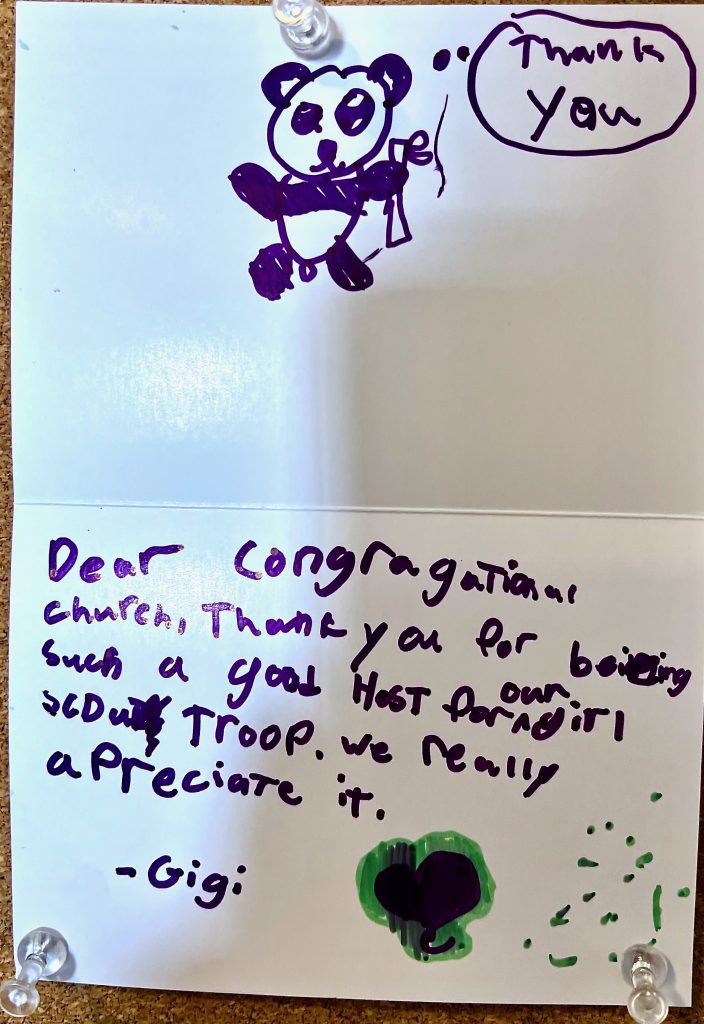 Thank
you
Dear Congragational
church, Thank you for being
such a good Host for our girl
scout Troop. we really
apreciate it.
-Gigi